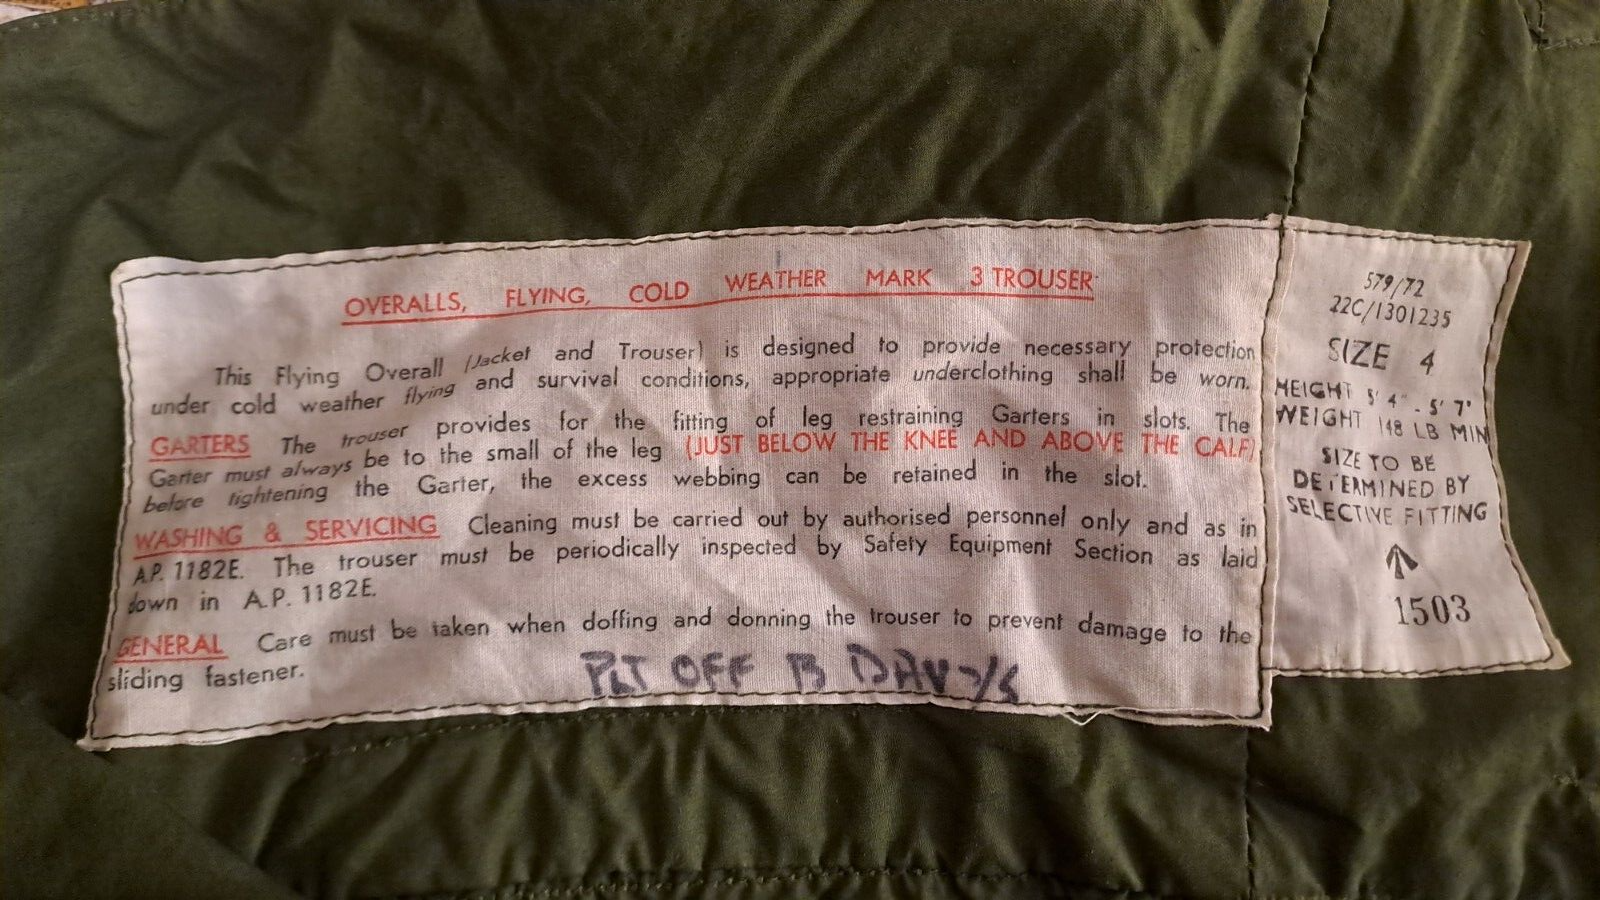 OVERALLS, FLYING, COLD WEATHER MARK 3 TROUSER
This Flying Overall (Jacket and Trouser) is designed to provide necessary protection
under cold weather flying and survival conditions, appropriate underclothing shall be worn.
GARTERS The trouser provides for the fitting of leg restraining Garters in slots. The
Garter must always be to the small of the leg (JUST BELOW THE KNEE AND ABOVE THE CALF)
before tightening the Garter, the excess webbing can be retained in the slot.
WASHING & SERVICING Cleaning must be carried out by authorised personnel only and as in
A.P. 1182E. The trouser must be periodically inspected by Safety Equipment Section as laid
down in A.P. 1182E.
GENERAL Care must be taken when doffing and donning the trouser to prevent damage to the
sliding fastener.
PLT OFF B
579/72
22C/1301235
SIZE 4
HEIGHT 5' 4" - 5' 7"
WEIGHT 148 LB MIN
SIZE TO BE
DETERMINED BY
SELECTIVE FITTING
1503